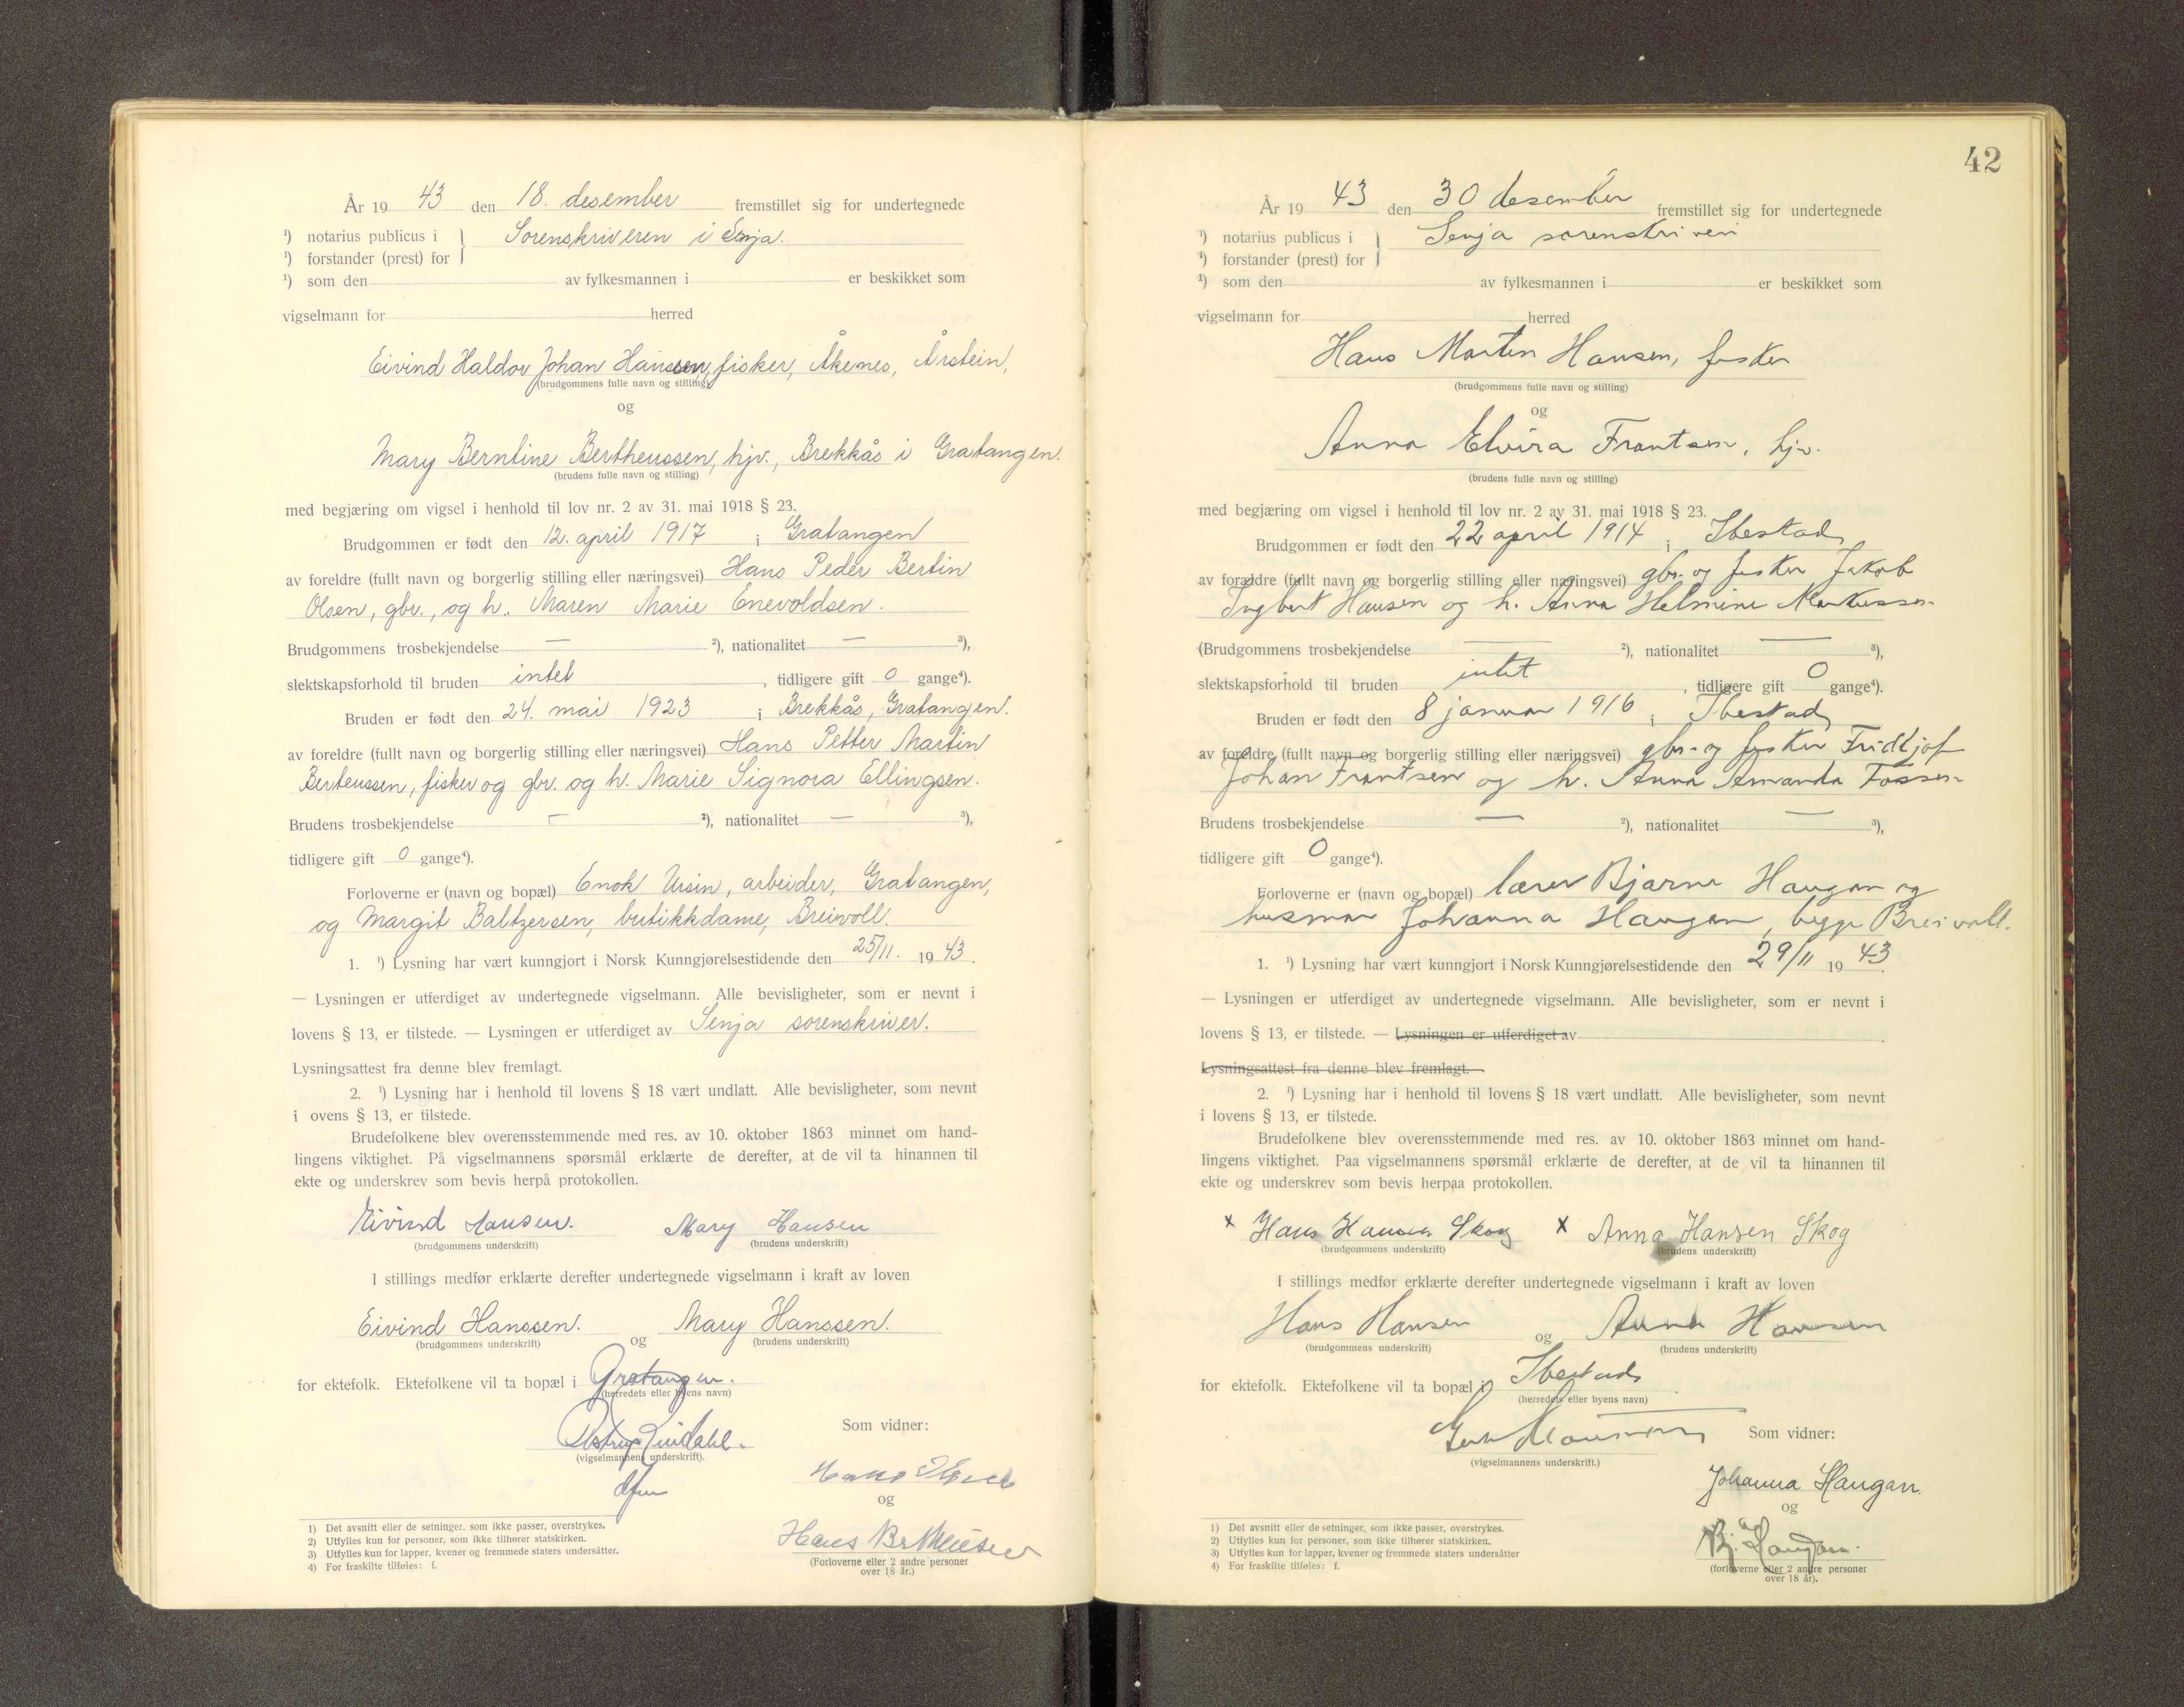 År 19 43 den 18. desember fremstillet sig for undertegnede
¹) notarius publicus i } Sorenskriveren i Senja.
¹) forstander (prest) for
¹) som den av fylkesmannen i er beskikket som
vigselmann for herred
Eivind Haldor Johan Hanssen, fisker, Åkenes, Årstein,
(brudgommens fulle navn og stilling)
og
Mary Berntine Bertheussen, hjv., Brekkås i Gratangen.
(brudens fulle navn og stilling)
med begjæring om vigsel i henhold til lov nr. 2 av 31. mai 1918 § 23.
Brudgommen er født den 12. april 1917 i Gratangen
av foreldre (fullt navn og borgerlig stilling eller næringsvei) Hans Peder Bertin
Olsen, gbr., og h. Maren Marie Enevoldsen.
Brudgommens trosbekjendelse — ²), nationalitet — ³),
slektskapsforhold til bruden intet, tidligere gift 0 gange⁴).
Bruden er født den 24. mai 1923 i Brekkås, Gratangen.
av foreldre (fullt navn og borgerlig stilling eller næringsvei) Hans Petter Martin
Berteussen, fisker og gbr. og h. Marie Signora Ellingsen.
Brudens trosbekjendelse — ²), nationalitet — ³),
tidligere gift 0 gange⁴).
Forloverne er (navn og bopæl) Enok Ursin, arbeider, Gratangen,
og Margit Baltzersen, butikkdame, Breivoll.
1. ¹) Lysning har vært kunngjort i Norsk Kunngjørelsestidende den 25/11. 19 43.
— Lysningen er utferdiget av undertegnede vigselmann. Alle bevisligheter, som er nevnt i
lovens § 13, er tilstede. — Lysningen er utferdiget av Senja sorenskriver.
Lysningsattest fra denne blev fremlagt.
2. ¹) Lysning har i henhold til lovens § 18 vært undlatt. Alle bevisligheter, som nevnt
i ovens § 13, er tilstede.
Brudefolkene blev overensstemmende med res. av 10. oktober 1863 minnet om hand-
lingens viktighet. På vigselmannens spørsmål erklærte de derefter, at de vil ta hinannen til
ekte og underskrev som bevis herpå protokollen.
Eivind Hansen. Mary Hansen
(brudgommens underskrift) (brudens underskrift)
I stillings medfør erklærte derefter undertegnede vigselmann i kraft av loven
Eivind Hanssen. og Mary Hanssen.
(brudgommens underskrift) (brudens underskrift)
for ektefolk. Ektefolkene vil ta bopæl i Gratangen.
(herredets eller byens navn)
Som vidner:
Lindahl.
(vigselmannens underskrift).
dfm
og
Hans Bertheusen
(Forloverne eller 2 andre personer
over 18 år.)
1) Det avsnitt eller de setninger. som ikke passer, overstrykes.
2) Utfylles kun for personer, som ikke tilhører statskirken.
3) Utfylles kun for lapper, kvener og fremmede staters undersåtter.
4) For fraskilte tilføies: f.
42
År 19 43 den 30 desember fremstillet sig for undertegnede
¹) notarius publicus i } Senja sorenskriveri
¹) forstander (prest) for
¹) som den av fylkesmannen i er beskikket som
vigselmann for herred
Hans Morten Hansen, fisker
(brudgommens fulle navn og stilling)
og
Anna Elvira Frantsen, hjv.
(brudens fulle navn og stilling)
med begjæring om vigsel i henhold til lov nr. 2 av 31. mai 1918 § 23.
Brudgommen er født den 22 april 1914 i Ibestad
av forældre (fullt navn og borgerlig stilling eller næringsvei) gbr. og fisker Jakob
Ingbert Hansen og h. Anna Helmine Markussen
(Brudgommens trosbekjendelse — ²), nationalitet — ³),
slektskapsforhold til bruden intet, tidligere gift 0 gange⁴).
Bruden er født den 8 januar 1916 i Ibestad
av foreldre (fullt navn og borgerlig stilling eller næringsvei) gbr. og fisker Fridtjof
Johan Frantsen og h. Anna Amanda Fossen
Brudens trosbekjendelse — ²), nationalitet — ³),
tidligere gift 0 gange⁴).
Forloverne er (navn og bopæl) lærer Bjarne Haugan og
husmor Johanna Haugan, begge Breivoll.
1. ¹) Lysning har vært kunngjort i Norsk Kunngjørelsestidende den 29/11 19 43.
— Lysningen er utferdiget av undertegnede vigselmann. Alle bevisligheter, som er nevnt i
lovens § 13, er tilstede. — Lysningen er utferdiget av
Lysningsattest fra denne blev fremlagt.
2. ¹) Lysning har i henhold til lovens § 18 vært undlatt. Alle bevisligheter, som nevnt
i lovens § 13, er tilstede.
Brudefolkene blev overensstemmende med res. av 10. oktober 1863 minnet om hand-
lingens viktighet. Paa vigselmannens spørsmål erklærte de derefter, at de vil ta hinannen til
ekte og underskrev som bevis herpaa protokollen.
x Hans Hansen Skog x Anna Hansen Skog
(brudgommens underskrift) (brudens underskrift)
I stillings medfør erklærte derefter undertegnede vigselmann i kraft av loven
Hans Hansen og Anna Hansen
(brudgommens underskrift) (brudens underskrift)
for ektefolk. Ektefolkene vil ta bopæl i Ibestad
(herredets eller byens navn)
Som vidner:
(vigselmannens underskrift.)
Johanna Haugan.
og
Bj. Haugan.
(forloverne eller 2 andre personer
over 18 år).
1) Det avsnitt eller de setninger, som ikke passer, overstrykes.
2) Utfylles kun for personer, som ikke tilhører statskirken.
3) Utfylles kun for lapper, kvener og fremmede staters undersåtter
4) For fraskilte tilføies: f.